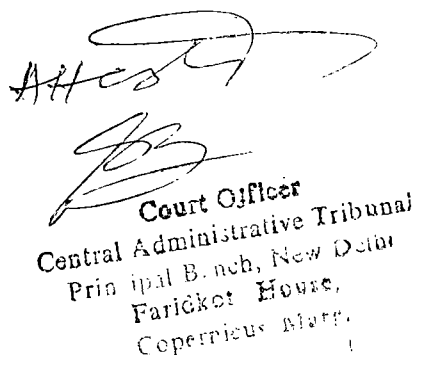 Attested
Court Officer
Central Administrative Tribunal
Principal Bench, New Delhi
Faridkot House,
Copernicus Marg,